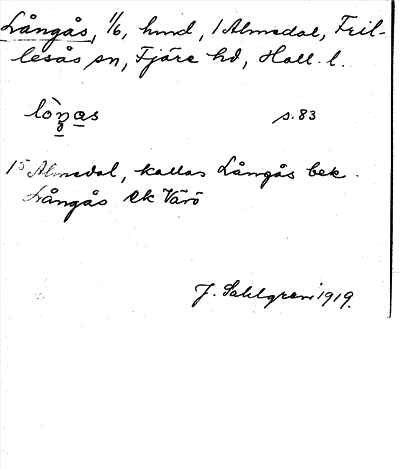 Långås, 1/6, hmd, 1 Almedal, Fril-
lesås sn, Fjäre hd, Hall. l.
s. 83
15 Almedal, kallas Långås bek.
Långås ek Värö
J. Sahlgren 1919.